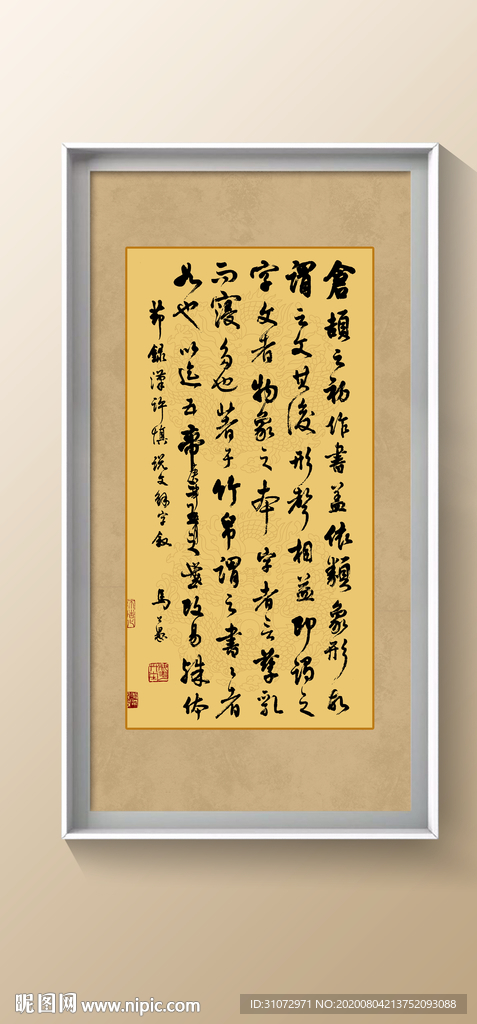 倉頡之初作書蓋依類象形故
謂之文其後形聲相益即謂之
字文者物象之本字者言孳乳
而寖多也著于竹帛謂之書〻者
如也以迄五帝三王之世改易殊体
節錄漢許慎說文解字叙 馬公愚
昵图网 www.nipic.com
ID:31072971 NO:20200804213752093088